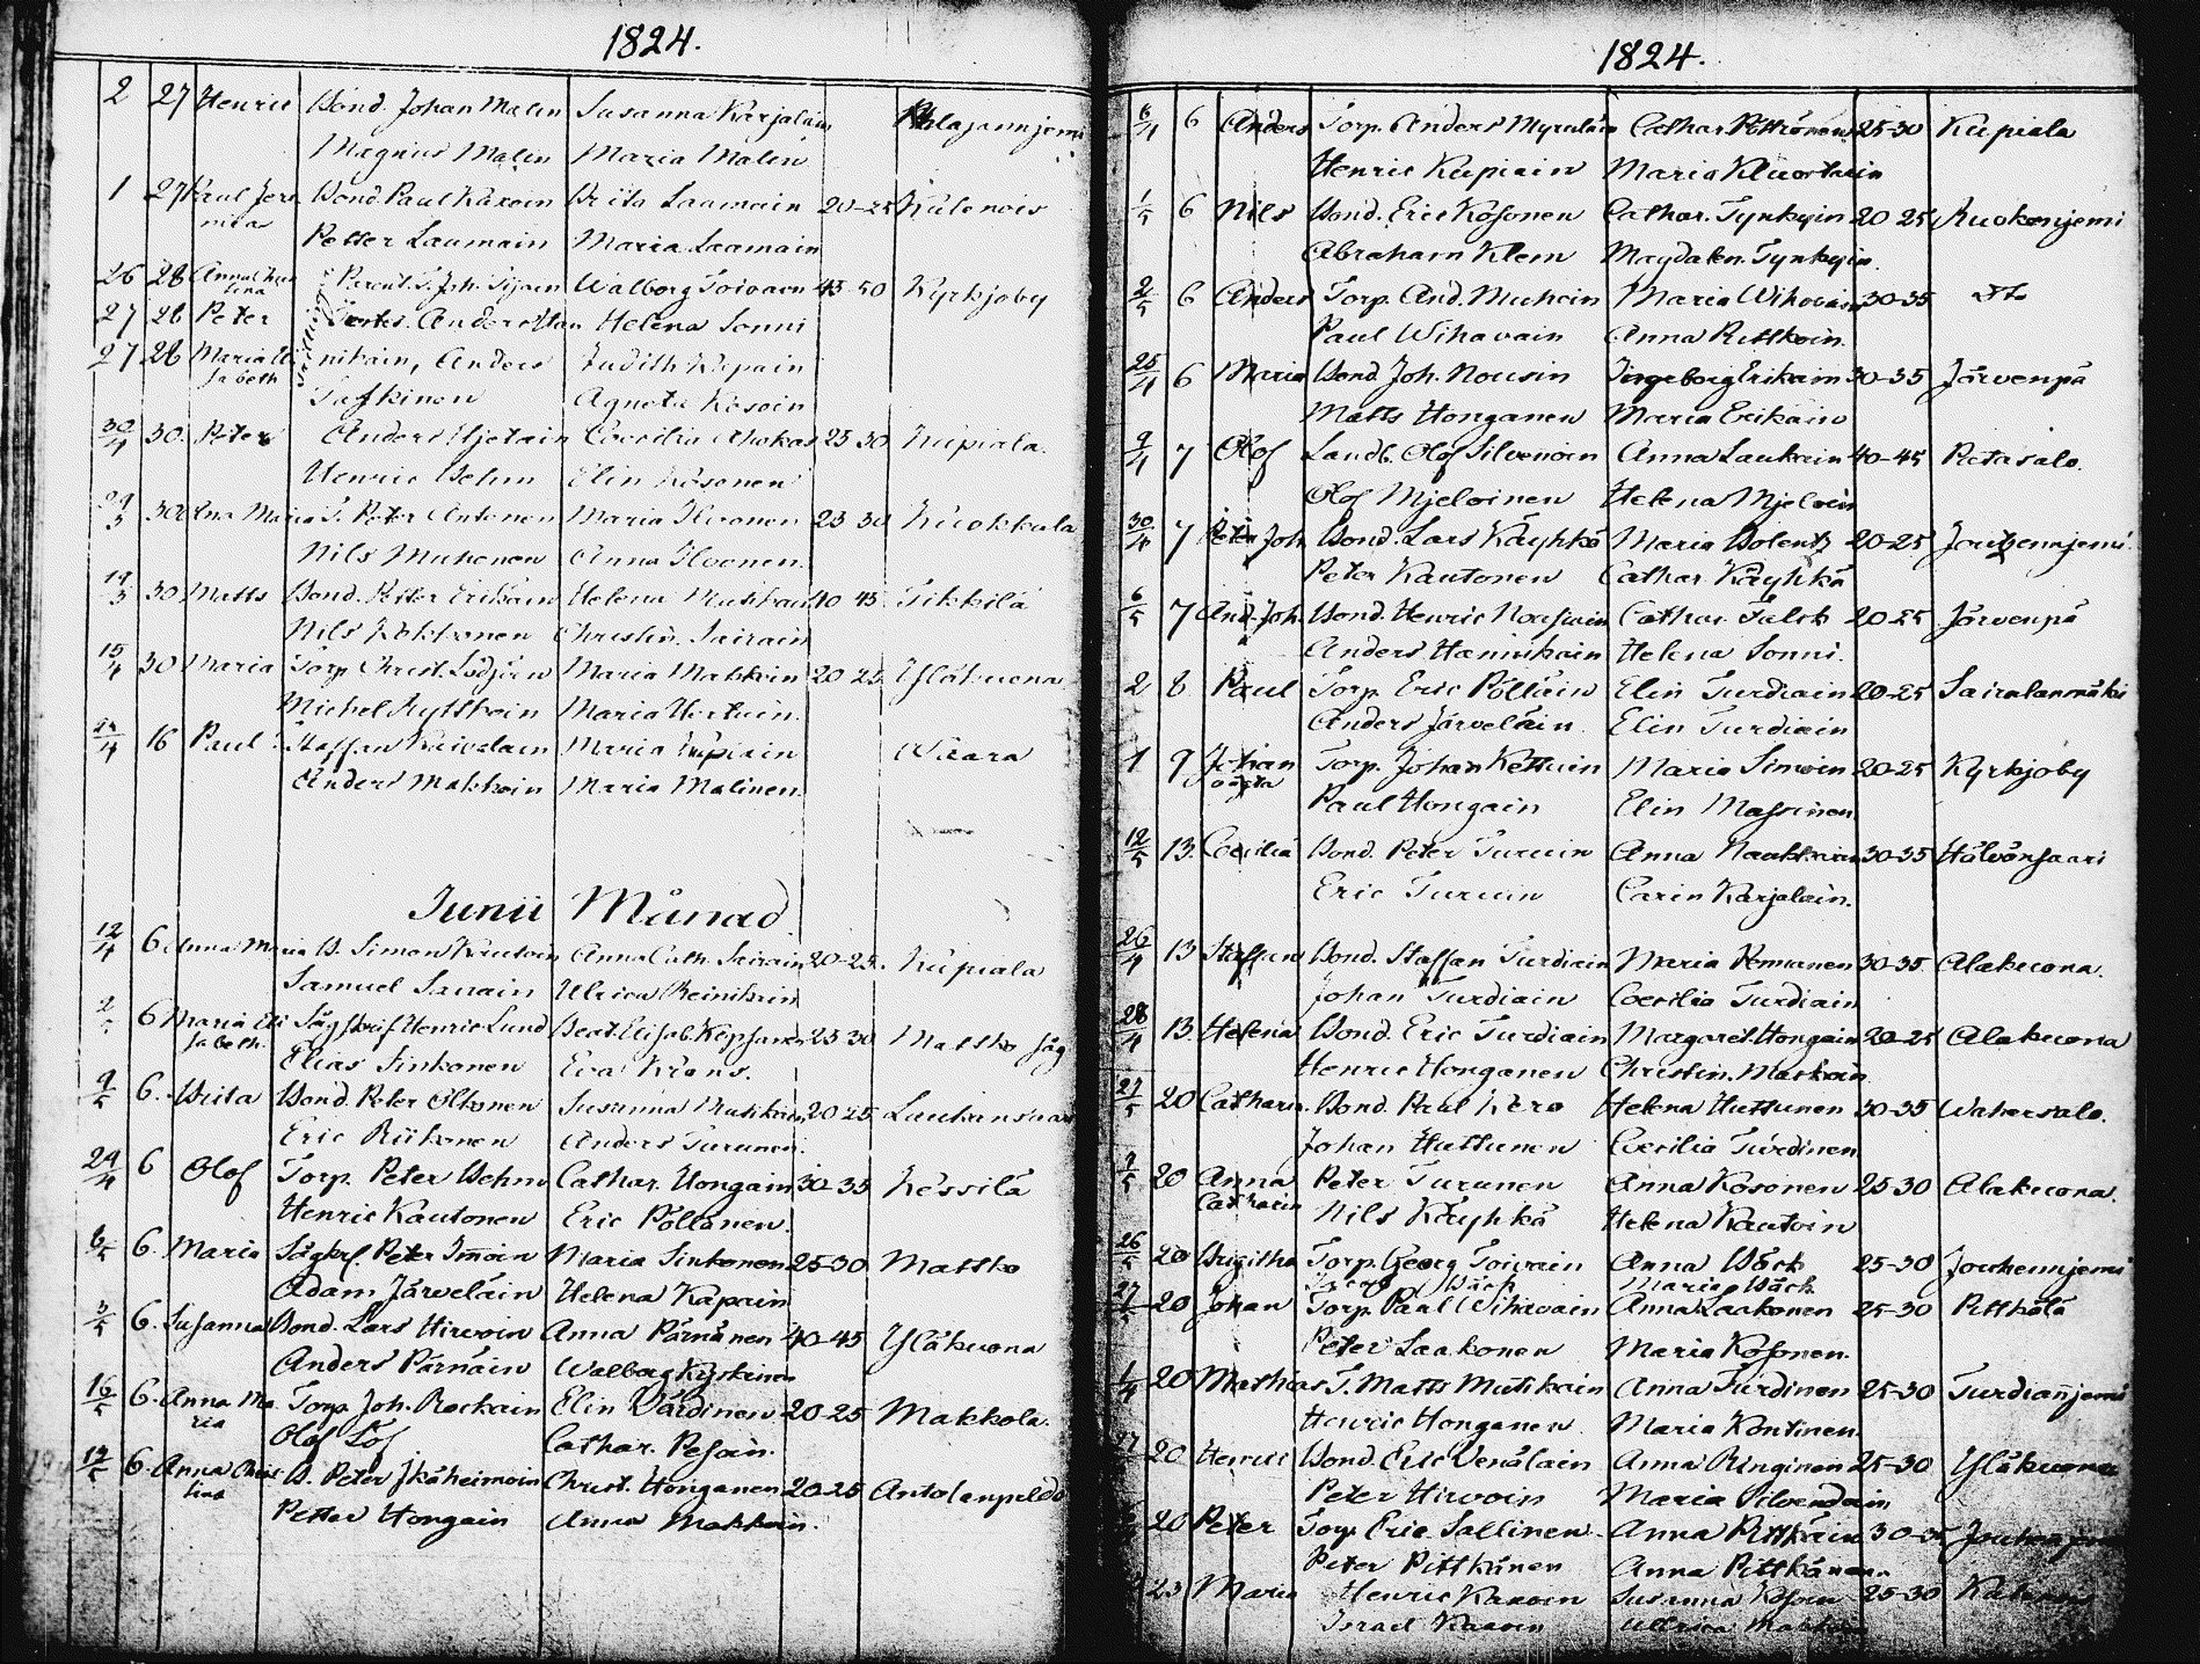 1824.
2 27 Henric Bond. Johan Malin Susanna Karjalain
Magnus Malin Maria Malin
1 27 Paul Jere Bond. Paul Karoin Brita Laamain 20-25
mias Petter Laamain Maria Laamain
26 28 Anna Chris Joh. Walborg Toivain 45-50 Kyrkjoby
tina
27 28 Peter Anders Helena Sonni
27 28 Maria Eli nikain, Anders Judith Kupain
sabeth Taskinen Agneta Kosoin
30/4 30. Peter Anders Hjetain Coecilia Ahokas 25 30 Kupiala.
Henric Behm Elin Kosonen
30 T. Peter Antonen Maria Ilvonen 25 30 Kuokkala
Nils Muhonen Anna Ilvonen.
19/3 30 Matts Bond. Petter Erikain Helena Mutikain 40 45 Tikkilä
Nils Kokkonen Christin. Sairain
15/4 30 Maria Torp. Christ. Maria Makkoin 20 25 Yläkuona
Michel Maria
24/4 16 Paul Staffan Maria Kupiain Waara
Anders Makkoin Maria Malinen.
Junii Månad
12/4 6 Anna Maria B. Simon Kautoin Anna Cath. Sairain 20-25. Kupiala
Samuel Sairain Ulrica Reinikain
2/5 6 Maria Eli Henric Lund Beat. Elisab. 25 30 Mattko såg
sabeth. Elias Sinkonen Eva Krons.
9/5 6. Brita Bond. Peter Olkonen Susanna Mutikain 20 25 Laukansaari
Eric Riikonen Anders Turunen.
29/4 6 Olof Torp. Peter Behm Cathar. Hongain 30-35 Kossilä
Henric Kautonen Eric Pöllänen.
6/5 6. Maria Sågkarl. Peter Imoin Maria Sinkonen 25-30 Mattko
Adam Järveläin Helena Kapain
3/5 6. Susanna Bond. Lars Hirvoin Anna Pärnänen 40-45 Yläkuona
Anders Pärnäin Walborg
16/5 6. Anna Ma Torp. Joh. Rockain Elin Värdinen 20-25 Makkola.
ria Olof Löf Cathar. Pesoin.
12/5 6. Anna Chris B. Peter Ikäheimoin Christ. Honganen 20-25 Antolanpeldo
tina Petter Hongain Anna Makkoin.
1824.
6/4 6 Anders Torp. Anders Myruläin Cathar. Pettrönen 25-30 Kupiala
Henric Kupiain Maria Kluostarin
1/5 6 Nils Bond. Eric Kosonen Cathar. Tynkyin 20 25 Ruokonjemi
Abraham Klem Magdalen. Tynkyin.
2/5 6 Anders Torp. And. Muhoin Maria Wihavain 30-35 Dto
Paul Wihavain Anna Rittkoin.
25/4 6 Maria Bond Joh. Nousin Ingeborg Erikain 30-35 Järvenpä
Matts Honganen Maria Erikain
9/4 7 Olof Landb. Olof Silvenoin Anna Laukain 40-45 Ratasalo.
Olof Mjeloinen Helena Mjeloin
30/4 7 Peter Joh Bond. Lars Käyhkö Maria Bolentz 20-25 Jouhennjemi.
Peter Kautonen Cathar. Käyhkä
6/5 7 And. Joh Bond. Henric Nousiain Cathar. Falck 20 25 Järvenpä
Anders Hannikain Helena Sonni.
2 8 Paul Torp. Eric Pölläin Elin Turdiain 20-25 Sairalanmäki
Anders Järveläin. Elin Turdiain
1 9 Johan Torp. Johan Kettuin Maria Simoin 20-25 Kyrkjoby
oäkta Paul Hongain Elin Massinen.
12/5 13. Coecilia Bond. Peter Turuin Anna Naukkarin 30-35 Hälvänsaari
Eric Turuin Carin Karjalain.
26/4 13 Staffan Bond. Staffan Turdiain Maria Pennanen 30-35. Alakuona.
Johan Turdiain Coecilia Turdiain
28/4 13. Helena Bond. Eric Turdiain Margaret. Hongain 20-25 Alakuona
Henric Honganen Christin. Maskoin
27/5 20 Catharin. Bond. Paul Kero Helena Huttunen 30-35 Wahersalo.
Johan Huttunen Coecilia Turdinen
9/5 20 Anna Peter Turunen Anna Kosonen 25 30 Alakuona.
Catharin Nils Käyhkä Helena Kautoin
26/5 20 Brigitha Torp. Georg Toivain Anna Bäck 25-30 Jouhennjemi
Georg Bäck Maria Bäck
27 20 Johan Torp. Paul Wihavain Anna Laakonen 25-30 Pittkälä
Peter Laakonen Maria Kosonen.
1/4 20 Mathias T. Matts Mutikain Anna Turdinen 25-30 Turdiannjemi
Henric Honganen Maria Kontinen.
27 20 Henric Bond. Eric Venäläin Anna Ringinen 25-30 Yläkuona
Peter Hirvoin Maria Silvendoin
20 Peter Torp. Eric Sallinen Anna Pittkäin 30-35
Peter Pittkänen Anna Pittkänen.
23 Maria Henric Karoin Susanna Kosoin 25-30
Israel Karoin Ullrica